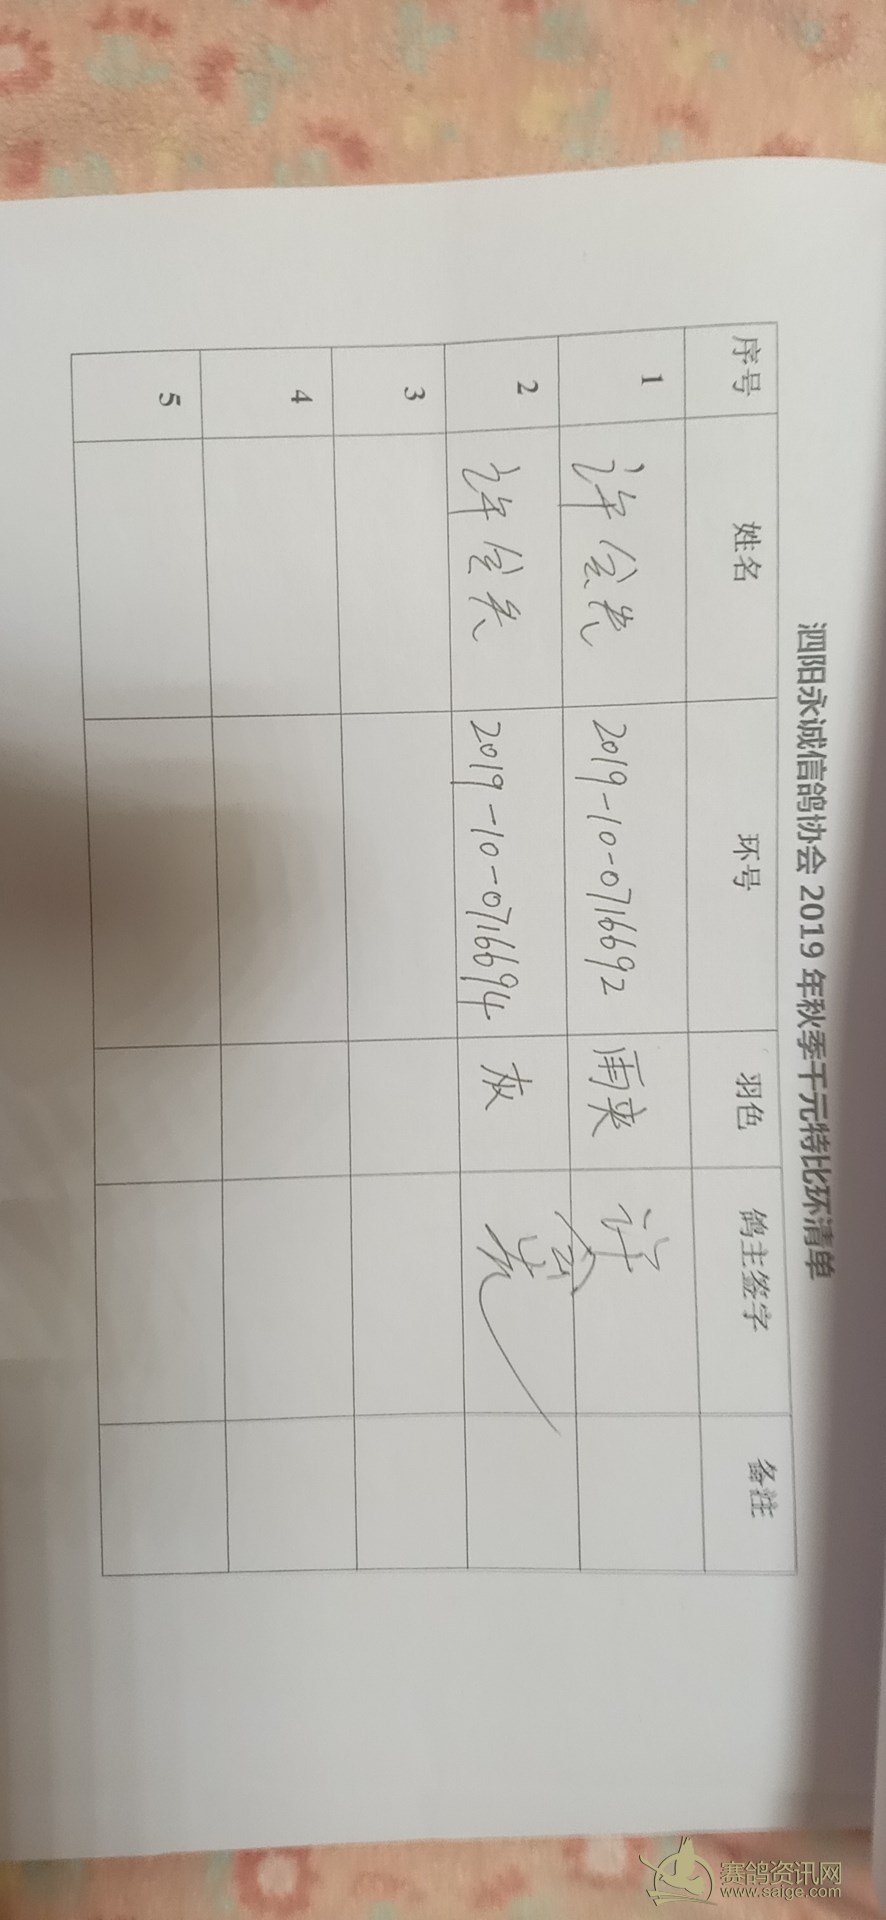 泗阳永诚信鸽协会 2019 年秋季千元特比环清单
序号 姓名 环号 羽色 鸽主签字 备注
1 许 2019-10-0716692 雨夹 许
2 许 2019-10-0716694 灰
3
4
5
赛鸽资讯网
www.saige.com